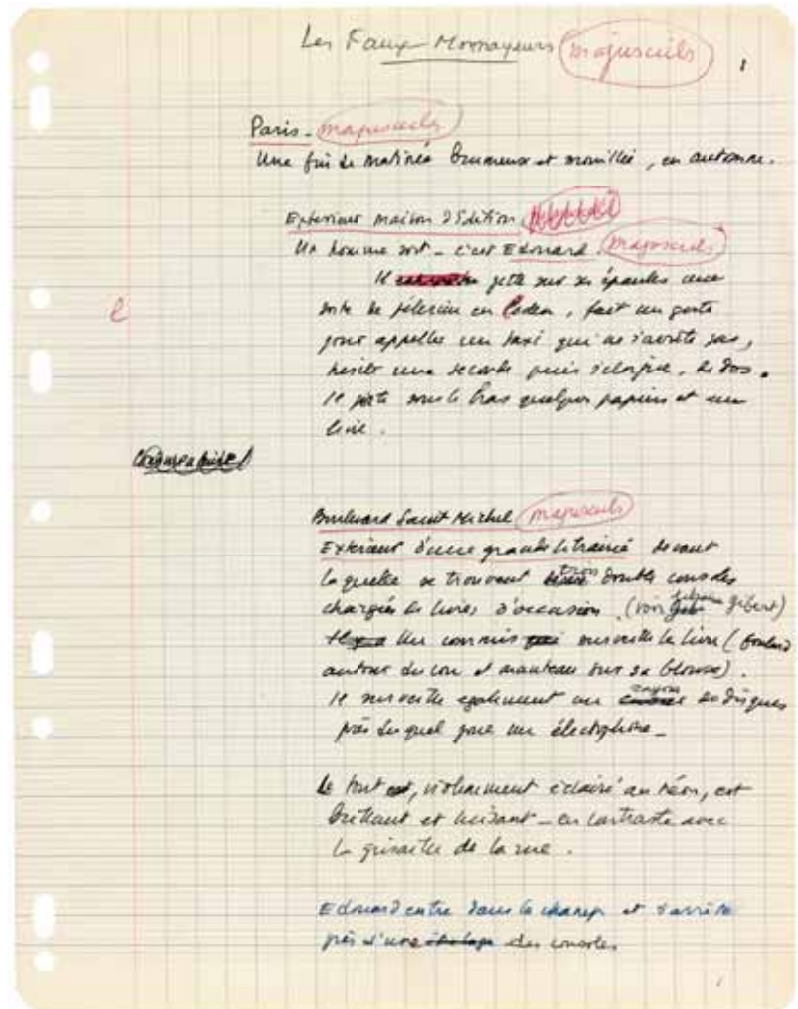 Les Faux-Monnayeurs majuscules
1
Paris - majuscules
Une fin de matinée brumeuse et mouillée, en automne.
Extérieur maison d'édition
Un homme sort - c'est Edouard majuscules
Il jette sur ses épaules une
sorte de pélerine en loden, fait un geste
l
pour appeller un taxi qui ne s'arrête pas,
hésite une seconde puis s'éloigne, de dos.
Il porte sous le bras quelques papiers et un
livre.
Boulevard Saint Michel majuscules
Extérieur d'une grande librairie devant
laquelle se trouvent trois double consoles
chargées de livres d'occasion. (voir Gibert)
Un commis surveille le livre (foulard
autour du cou et manteau sur sa blouse).
Il surveille egalement un rayon de disques
près duquel joue un électrophone -
Le tout, violemment éclairé au néon, est
brillant et luisant - en contraste avec
la grisaille de la rue.
Edouard entre dans le champ et s'arrête
près d'une des consoles